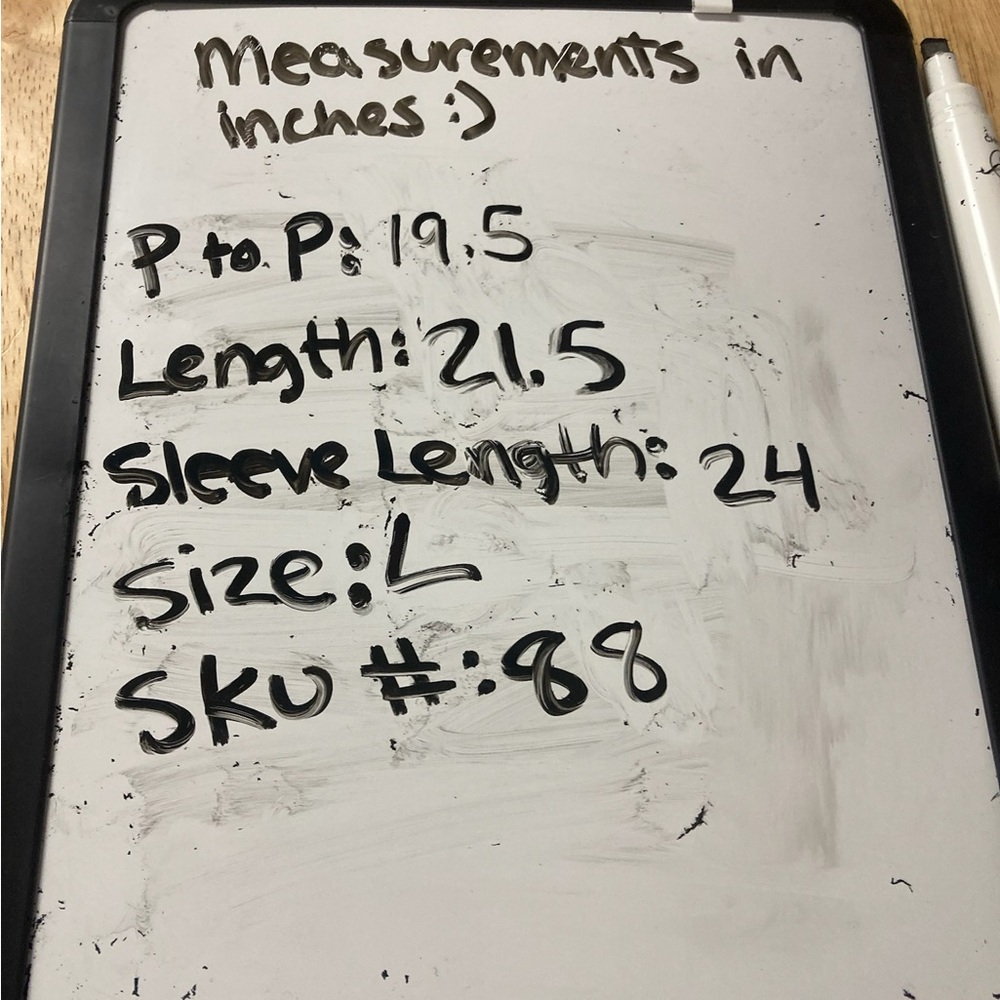 Measurements in
inches :)
P to P: 19.5
Length: 21.5
Sleeve Length: 24
Size: L
SKU #: 88